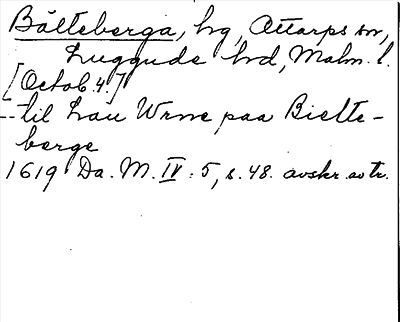 Bälteberga, hg, Ottarps sn,
Luggude hd, Malm. l.
[Octob. 4.]
-- til Lau Wrne paa Bielte-
berge
1619 Da. M. IV : 5, s. 48. avskr. sv tr.